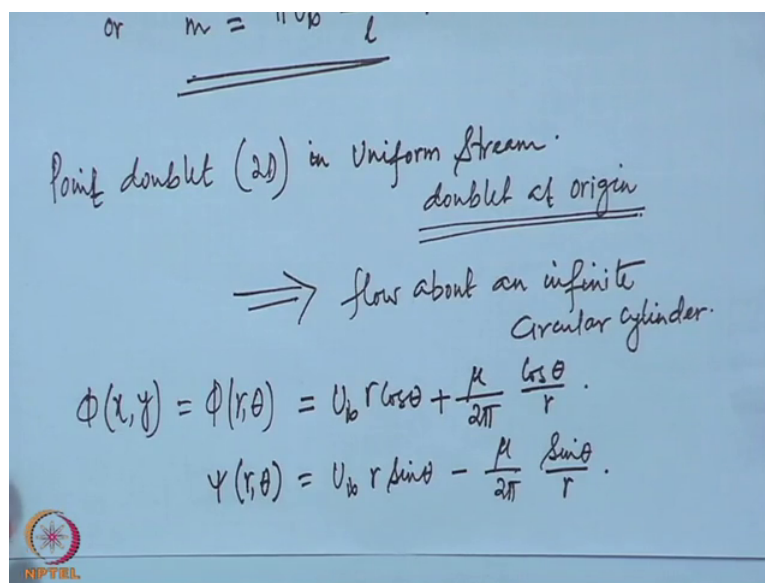 or m = πU∞ — l
Point doublet (2D) in Uniform Stream.
doublet at origin
⟹ flow about an infinite
Circular cylinder.
Φ(x,y) = Φ(r,θ) = U∞ r cosθ + μ/2π cosθ/r .
Ψ(r,θ) = U∞ r sinθ − μ/2π sinθ/r .
NPTEL